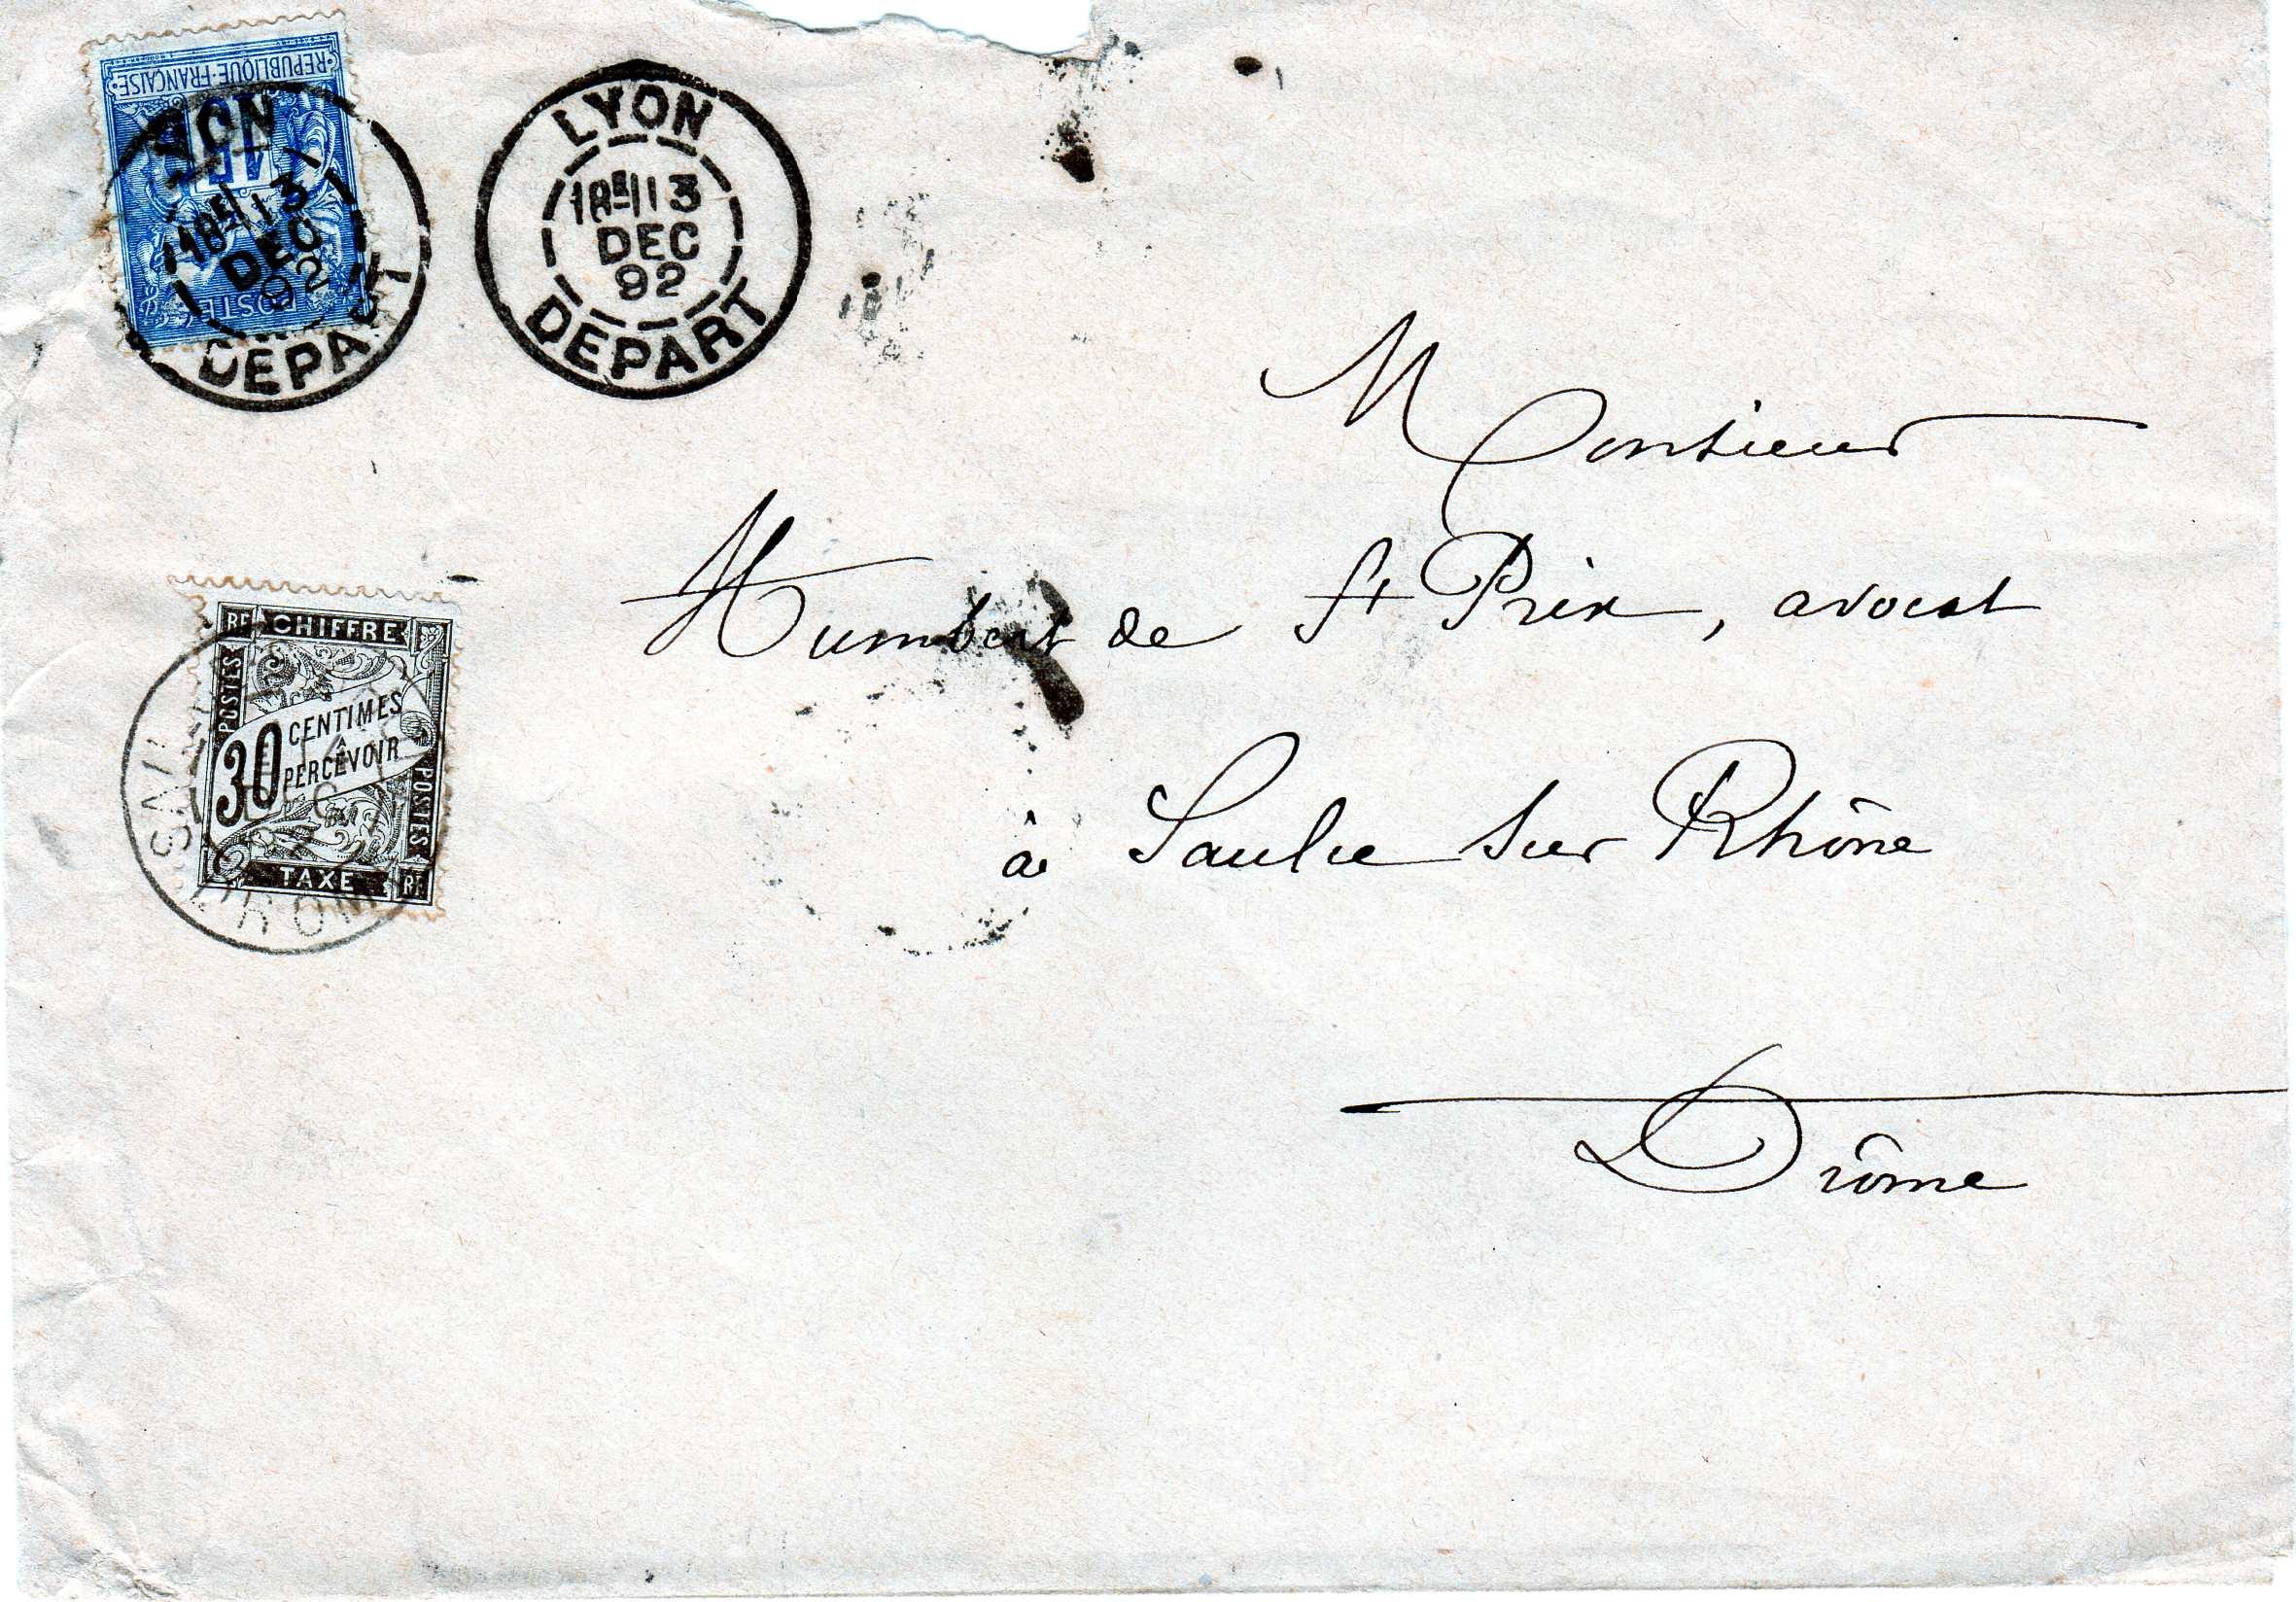 REPUBLIQUE·FRANÇAISE
15
POSTE
LYON
18E 13
DEC
92
DEPART
LYON
18E 13
DEC
92
DEPART
Monsieur
Humbert de St Prix, avocat
à Saulce sur Rhône
Drôme
RF CHIFFRE
POSTES
30 CENTIMES
PERCEVOIR
POSTES
TAXE RF
DROME